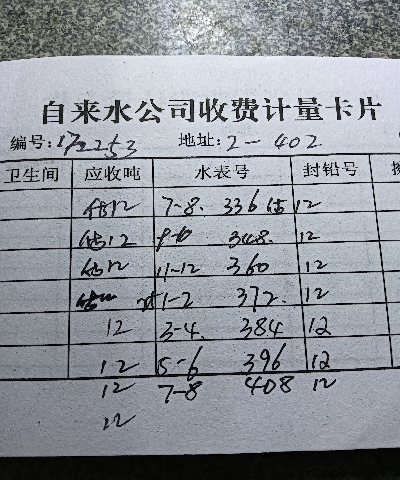 自来水公司收费计量卡片
编号: 172253 地址: 2-402
卫生间 应收吨 水表号 封铅号
估12 7-8. 336 12
估12 9-10 348. 12
估12 11-12 360 12
1-2 372. 12
12 3-4. 384 12
12 5-6 396 12
12 7-8 408 12
12